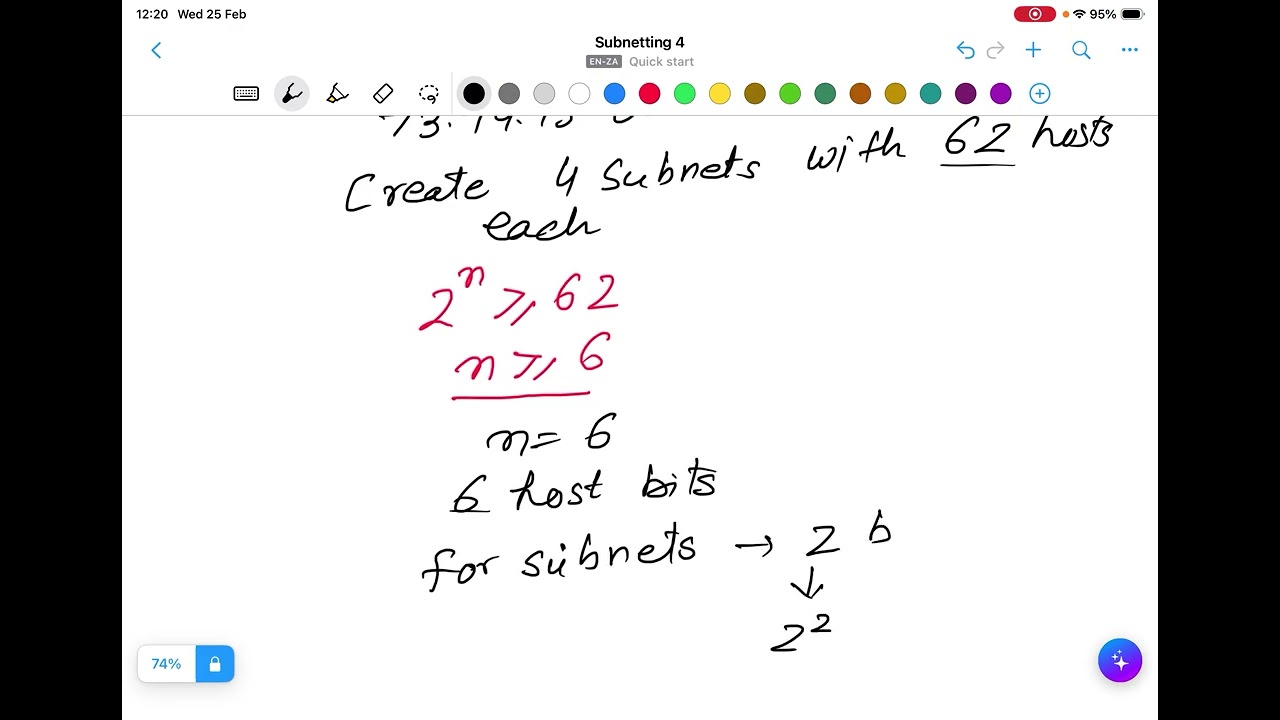 12:20 Wed 25 Feb
95%
Subnetting 4
EN-ZA Quick start
Create 4 subnets with 62 hosts
each
2^n ≥ 62
n ≥ 6
n = 6
6 host bits
for subnets → 2 b
↓
2^2
74%